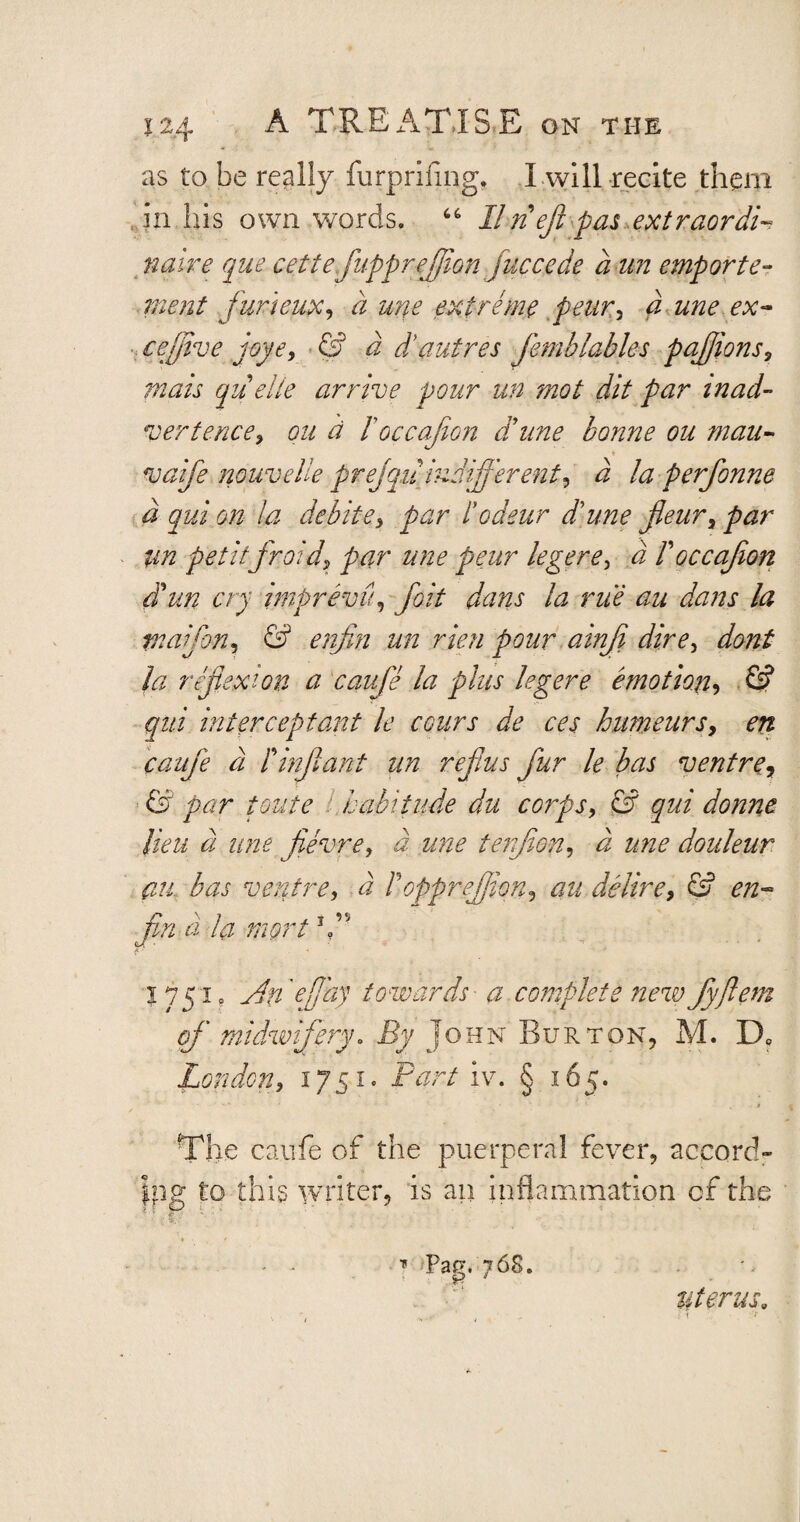 124 A TREATISE ON THE
as to be really ſurpriſing. I will recite them
in his own words. “ Il n'eſt pas extraordi-
naire que cette ſuppreſſion ſuccede à un emporte-
ment furieux, à une extrême peur, à une ex-
ceſſive joye, & à d'autres ſemblables paſſions,
mais qu'elle arrive pour un mot dit par inad-
vertence, ou à l'occaſion d'une bonne ou mau-
vaiſe nouvelle preſqu'indifferent, à la perſonne
à qui on la debite, par l'odeur d'une fleur, par
un petit froid, par une peur legere, à l'occaſion
d'un cry imprévû, ſoit dans la ruë au dans la
maiſon, & enfin un rien pour ainſi dire, dont
la réflexion a cauſé la plus legere émotion, &
qui interceptant le cours de ces humeurs, en
cauſe à l'inſtant un reflus ſur le bas ventre,
& par toute l'habitude du corps, & qui donne
lieu à une fiévre, à une tenſion, à une douleur
au bas ventre, à l'oppreſſion, au délire, & en-
fin à la mort ¹.”
1751. An eſſay towards a complete new ſyſtem
of midwifery. By JOHN BURTON, M. D.
London, 1751. Part iv. § 165.
The cauſe of the puerperal fever, accord-
ing to this writer, is an inflammation of the
¹ Pag. 768.
uterus.